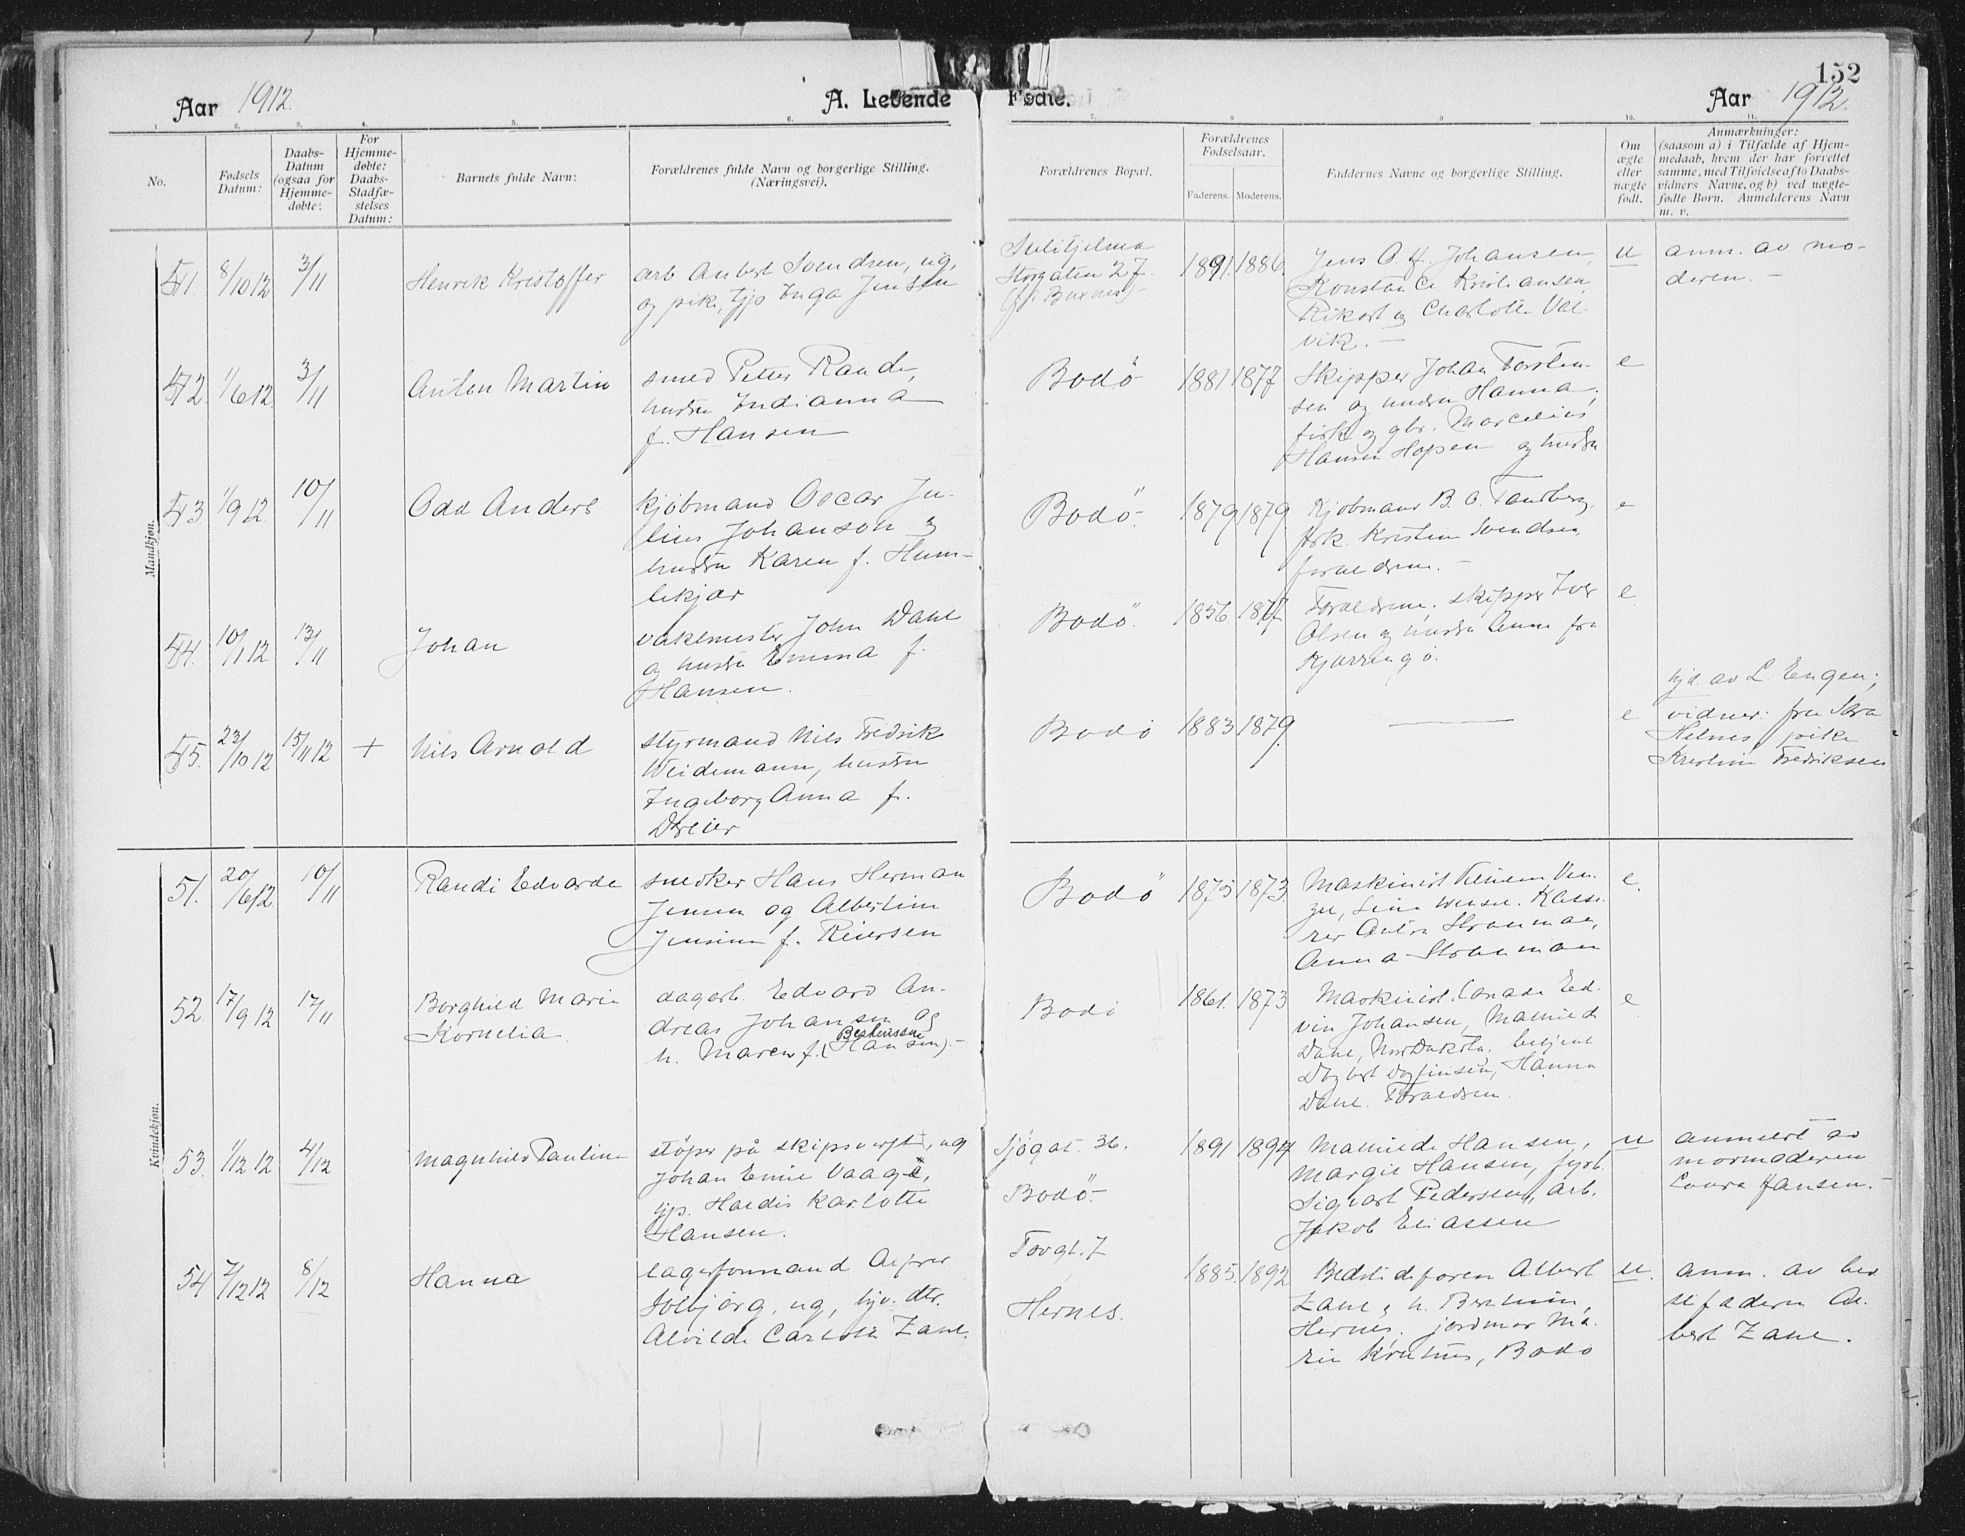 152
Aar 1912.
A. Levende
Fødte.
Aar 1912.
No.
Fødsels Datum:
Daabs-Datum (ogsaa for Hjemme-døbte:
For Hjemme-døbte: Daabs-Stadfæ-stelses Datum:
Barnets fulde Navn:
Forældrenes fulde Navn og borgerlige Stilling. (Næringsvei).
Forældrenes Bopæl.
Forældrenes Fødselsaar.
Faderens. Moderens.
Faddernes Navne og borgerlige Stilling.
Om ægte eller uægte født.
Anmærkninger: (saasom a) i Tilfælde af Hjem-medaab, hvem der har forrettet samme, med Tilføielse af to Daabs-vidners Navne, og b) ved uægte-fødte Børn. Anmelderens Navn m. v.
Mandkjøn.
51. 8/10 12 3/11 Henrik Kristoffer
arb Anbert Svendsen, ug,
og pike, tjp Inga Jensen
Sulitjelma
Storgaten 27.
1891. 1886.
Jens O. A. Johansen,
Konstance Kristiansen
Rikart og Charlotte Val-
vik. —
u
anm. av mo-
deren. —
52 1/6 12 3/11 Anton Martin
smed Petter Rande,
hustru Indianna
f. Hansen
Bodö
1881 1877
Skipper Johan Torsten-
sen og hustru Hanna,
fisk og gbr. Marcelius
Hansen Hopen og hustru
e
53 1/9 12 10/11 Odd Anders
kjöbmand Oscar Ju-
lius Johanson og
hustru Karen f. Hum-
lekjær
Bodö.
1879 1879
Kjöbmand B. O. Tandberg,
frk. Kristine Svendsen,
foraeldrene. —
e
54. 10/1 12 13/11 Johan
vaktmester John Dahl
og hustru Emma f.
Hansen.
Bodö.
1856. 1877.
Foraeldrene. skipper Iver
Olsen og hustru Anna fra
Kjærringö.
e
55. 23/10 12 15/11 12 + Nils Arnold
styrmand Nils Fredrik
Weidemann, hustru
Ingeborg Anna f.
Dreier
Bodö
1883 1879.
e
hjd. av L. Engen;
vidner: fru Sara
Helnes, pike
Kristine Fredriksen
Kvindekjøn.
51. 20/6 12 10/11 Randi Edvarda
snedker Hans Herman
Jensen og Albertine
Jensine f. Reiersen
Bodö
1875 1873.
Anna Stranman
e.
52. 17/9 12 17/11 Borghild Marie
Kornelia
dagarb. Edvard An-
dreas Johansen og
h. Maren f. (Hansen). —
Bodö
1861. 1873
vin Johansen, Mathilde
Dahl, Norddakota.
Dahl. Foraeldren.
e
53. 1/12 12 4/12 Magnhild Pauline
støper på skipsverft, ug
Johan Emil Vaage,
tjp. Hardis Karlotte
Hansen.
Sjögat. 36.
Bodö
1891 1894
Mathilde Hansen,
Margit Hansen, fyrb.
Sigvart Pedersen, arb.
Jakob Eliassen
u
anmeldt av
mormoderen
Laura Jansen. —
54 7/12 12 8/12 Hanna
lagerformand Alfred
Solbjörg, ug, hjv. dtr.
Alvilde Carlotta Zahl.
Torvgt. 7
Hernes.
1885. 1892
Bedsteforen Albert
Zahl, h. Berthine,
Hernes. jordmor Ma-
rie Knutsen, Bodö
u.
anm. av bed
stefaderen Al-
bert Zahl.